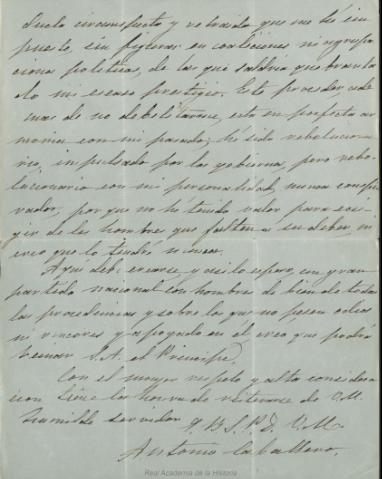 ducta circunspecta y retraida que me hé im
puesto, sin figurar en coaliciones ni agrupa
ciones politicas, de las que saldria quebranta
do mi escaso prestigio. Este proceder ade
mas de no debilitarme, está en perfecta ar
monia con mi pasado; hé sido rebolucio
rio, impulsado por los gobiernos, pero rebo
lucionario con mi personalidad, nunca conspi
rador, porque no hé tenido valor para exi
gir de los hombres que falten a su deber, ni
creo que lo tendré nunca.
Aqui debe crearse, y asi lo espero, un gran
partido nacional con hombres de bien de todas
las procedencias y sobre los que no pesen odios
ni rencores y apoyado en el creo que podrá
reinar S. A. el Principe.
Con el mayor respeto y alta considera
cion tiene la honra de reiterarse de V. M.
humilde servidor
Q. B. L. R. P. D. V. M.
Antonio Caballero.
Real Academia de la Historia